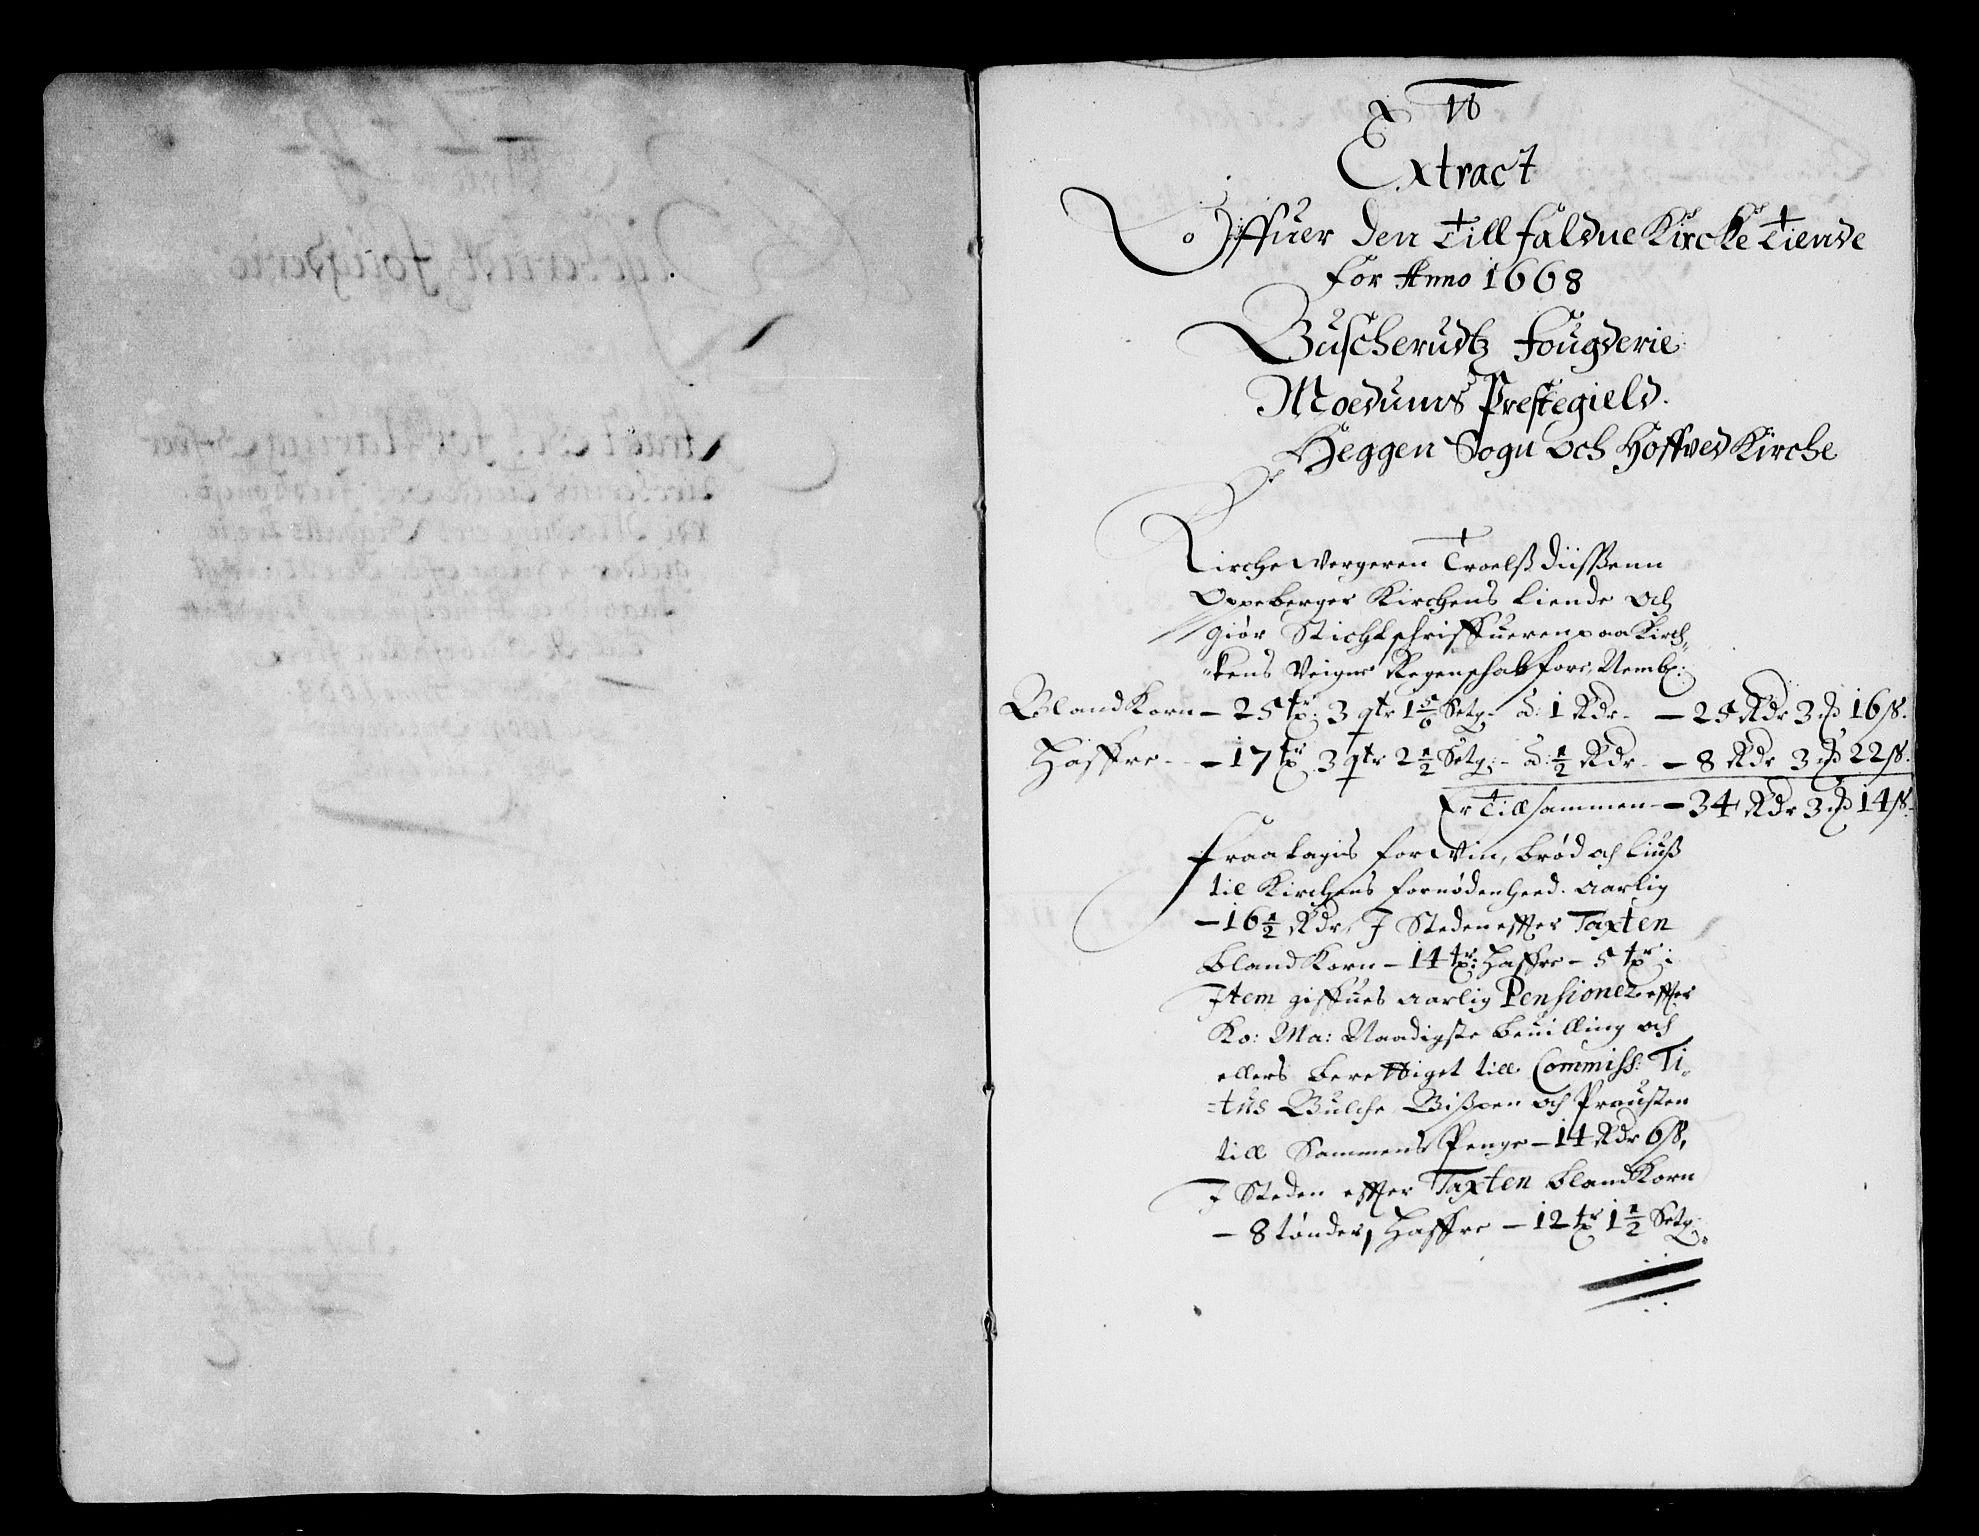 Extract
Offuer den Till faldne Kircke Tiende
for Anno 1668
Buscherudtz fougderie
Moedums Prestegield.
Heggen Sogn och Hoffved Kirche
Kirche wergeren Troelsß
Oppeberger Kirchens tiende och
giør Stichtschriffueren paa Kirch„
„kens Veigne Regenschab fore, Nembl:
Bland Korn – 25 tr: 3 qtr 1 5/6 Setg: – a: 1 Rdr – – 25 Rdr 3 ß 16 s.
Haffre – – 17 tr 3 qtr 2 1/2 Setg: – a: 1/2 Rdr – – 8 Rdr 3 ß 22 s.
Er Till sammen – 34 Rdr 3 ß 14 s.
fraatagis for Vin, brød och liuß
til Kirchens fornødenheed. aarlig
– 16 1/2 Rdr, J Steden effter Taxten
bland Korn – 14 tr: Haffre – 5 tr:
Jtem giffues aarlig Pensioner effter
Ko: Ma: Naadigste beuilling och
ellers berettiget till Commiss: Ti„
„tus Bulche Bißpen och Prousten
till Sammens Penge – 14 Rdr 6 s,
J Steden effter Taxten bland Korn
– 8 tønder, Haffre – 12 tr 1 1/2 Setg: